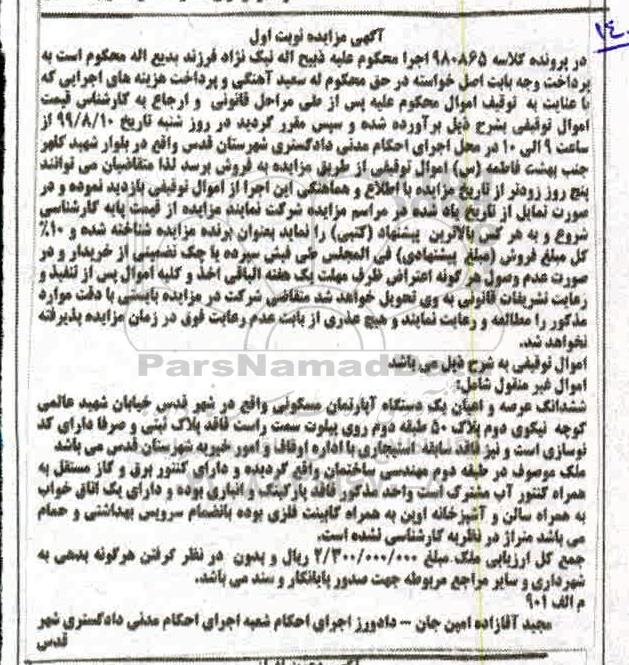 آگهی مزایده نوبت اول
در پرونده کلاسه ۹۸۰۸۶۵ اجرا محکوم علیه ذبیح اله نیک نژاد فرزند بدیع اله محکوم است به
پرداخت وجه بابت اصل خواسته در حق محکوم له سعید آهنگی و پرداخت هزینه های اجرایی که
با عنایت به توقیف اموال محکوم علیه پس از طی مراحل قانونی و ارجاع به کارشناس قیمت
اموال توقیفی بشرح ذیل برآورده شده و سپس مقرر گردید در روز شنبه تاریخ ۹۹/۸/۱۰ از
ساعت ۹ الی ۱۰ در محل اجرای احکام مدنی دادگستری شهرستان قدس واقع در بلوار شهید کلهر
جنب بهشت فاطمه (س) اموال توقیفی از طریق مزایده به فروش برسد لذا متقاضیان می توانند
پنج روز زودتر از تاریخ مزایده با اطلاع و هماهنگی این اجرا از اموال توقیفی بازدید نموده و در
صورت تمایل از تاریخ یاد شده در مراسم مزایده شرکت نمایند مزایده از قیمت پایه کارشناسی
شروع و به هر کس بالاترین پیشنهاد (کتبی) را نماید بعنوان برنده مزایده شناخته شده و ۱۰٪
کل مبلغ فروش (مبلغ پیشنهادی) فی المجلس طی فیش سپرده یا چک تضمینی از خریدار و در
صورت عدم وصول هر گونه اعتراض ظرف مهلت یک هفته الباقی اخذ و کلیه اموال پس از تنفیذ و
رعایت تشریفات قانونی به وی تحویل خواهد شد متقاضی شرکت در مزایده بایستی با دقت موارد
مذکور را مطالعه و رعایت نمایند و هیچ عذری از بابت عدم رعایت فوق در زمان مزایده پذیرفته
نخواهد شد.
اموال توقیفی به شرح ذیل می باشد
ParsNamadData
اموال غیر منقول شامل:
ششدانگ عرصه و اعیان یک دستگاه آپارتمان مسکونی واقع در شهر قدس خیابان شهید عالمی
کوچه نیکوی دوم پلاک ۵۰ طبقه دوم روی پیلوت سمت راست فاقد پلاک ثبتی و صرفا دارای کد
نوسازی است و نیز فاقد سابقه استیجاری با اداره اوقاف و امور خیریه شهرستان قدس می باشد
ملک موصوف در طبقه دوم مهندسی ساختمان واقع گردیده و دارای کنتور برق و گاز مستقل به
همراه کنتور آب مشترک است واحد مذکور فاقد پارکینگ و انباری بوده و دارای یک اتاق خواب
به همراه سالن و آشپزخانه اوپن به همراه کابینت فلزی بوده بانضمام سرویس بهداشتی و حمام
می باشد متراژ در نظریه کارشناسی نشده است.
جمع کل ارزیابی ملک مبلغ ۲/۳۰۰/۰۰۰/۰۰۰ ریال و بدون در نظر گرفتن هرگونه بدهی به
شهرداری و سایر مراجع مربوطه جهت صدور پایانکار و سند می باشد.
م الف ۹۰۱
مجید آقازاده امین جان – دادورز اجرای احکام شعبه اجرای احکام مدنی دادگستری شهر
قدس